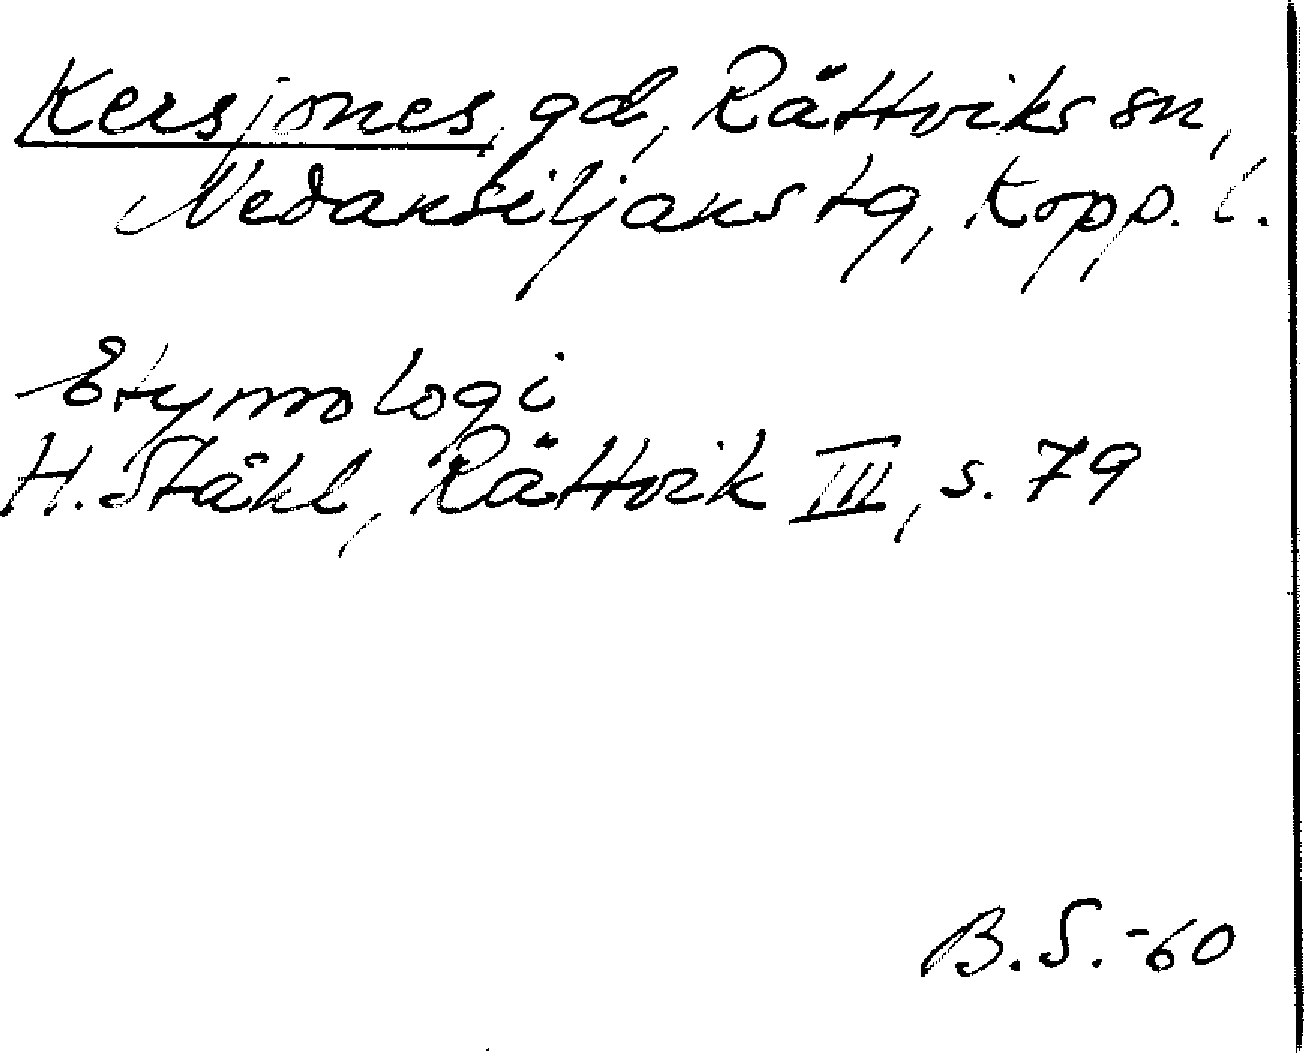 Kersjones, gd, Rättviks sn,
Nedansiljans tg, Kopp. l.
Etymologi
H. Ståhl, Rättvik III, s. 79
B. S. -60